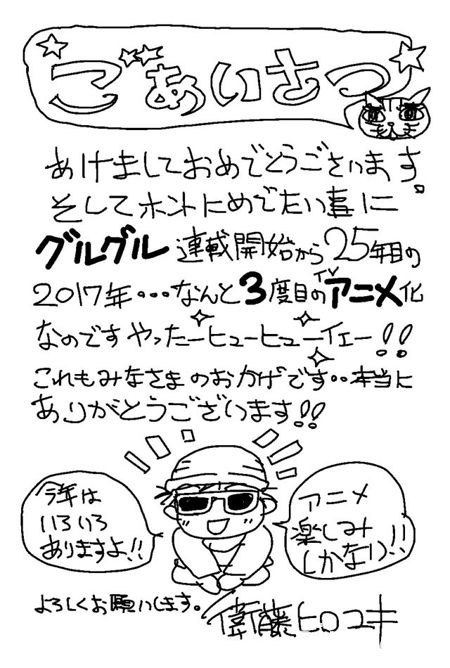 ごあいさつ
あけましておめでとうございます。
そしてホントにめでたい事に
グルグル連載開始から25年目の
2017年・・・なんと3度目のTVアニメ化
なのですやったーヒューヒューイェー!!
これもみなさまのおかげです・・本当に
ありがとうございます!!
今年は
いろいろ
ありますよ!!
アニメ
楽しみ
(かなり)!!
よろしくお願いします。
衛藤ヒロユキ